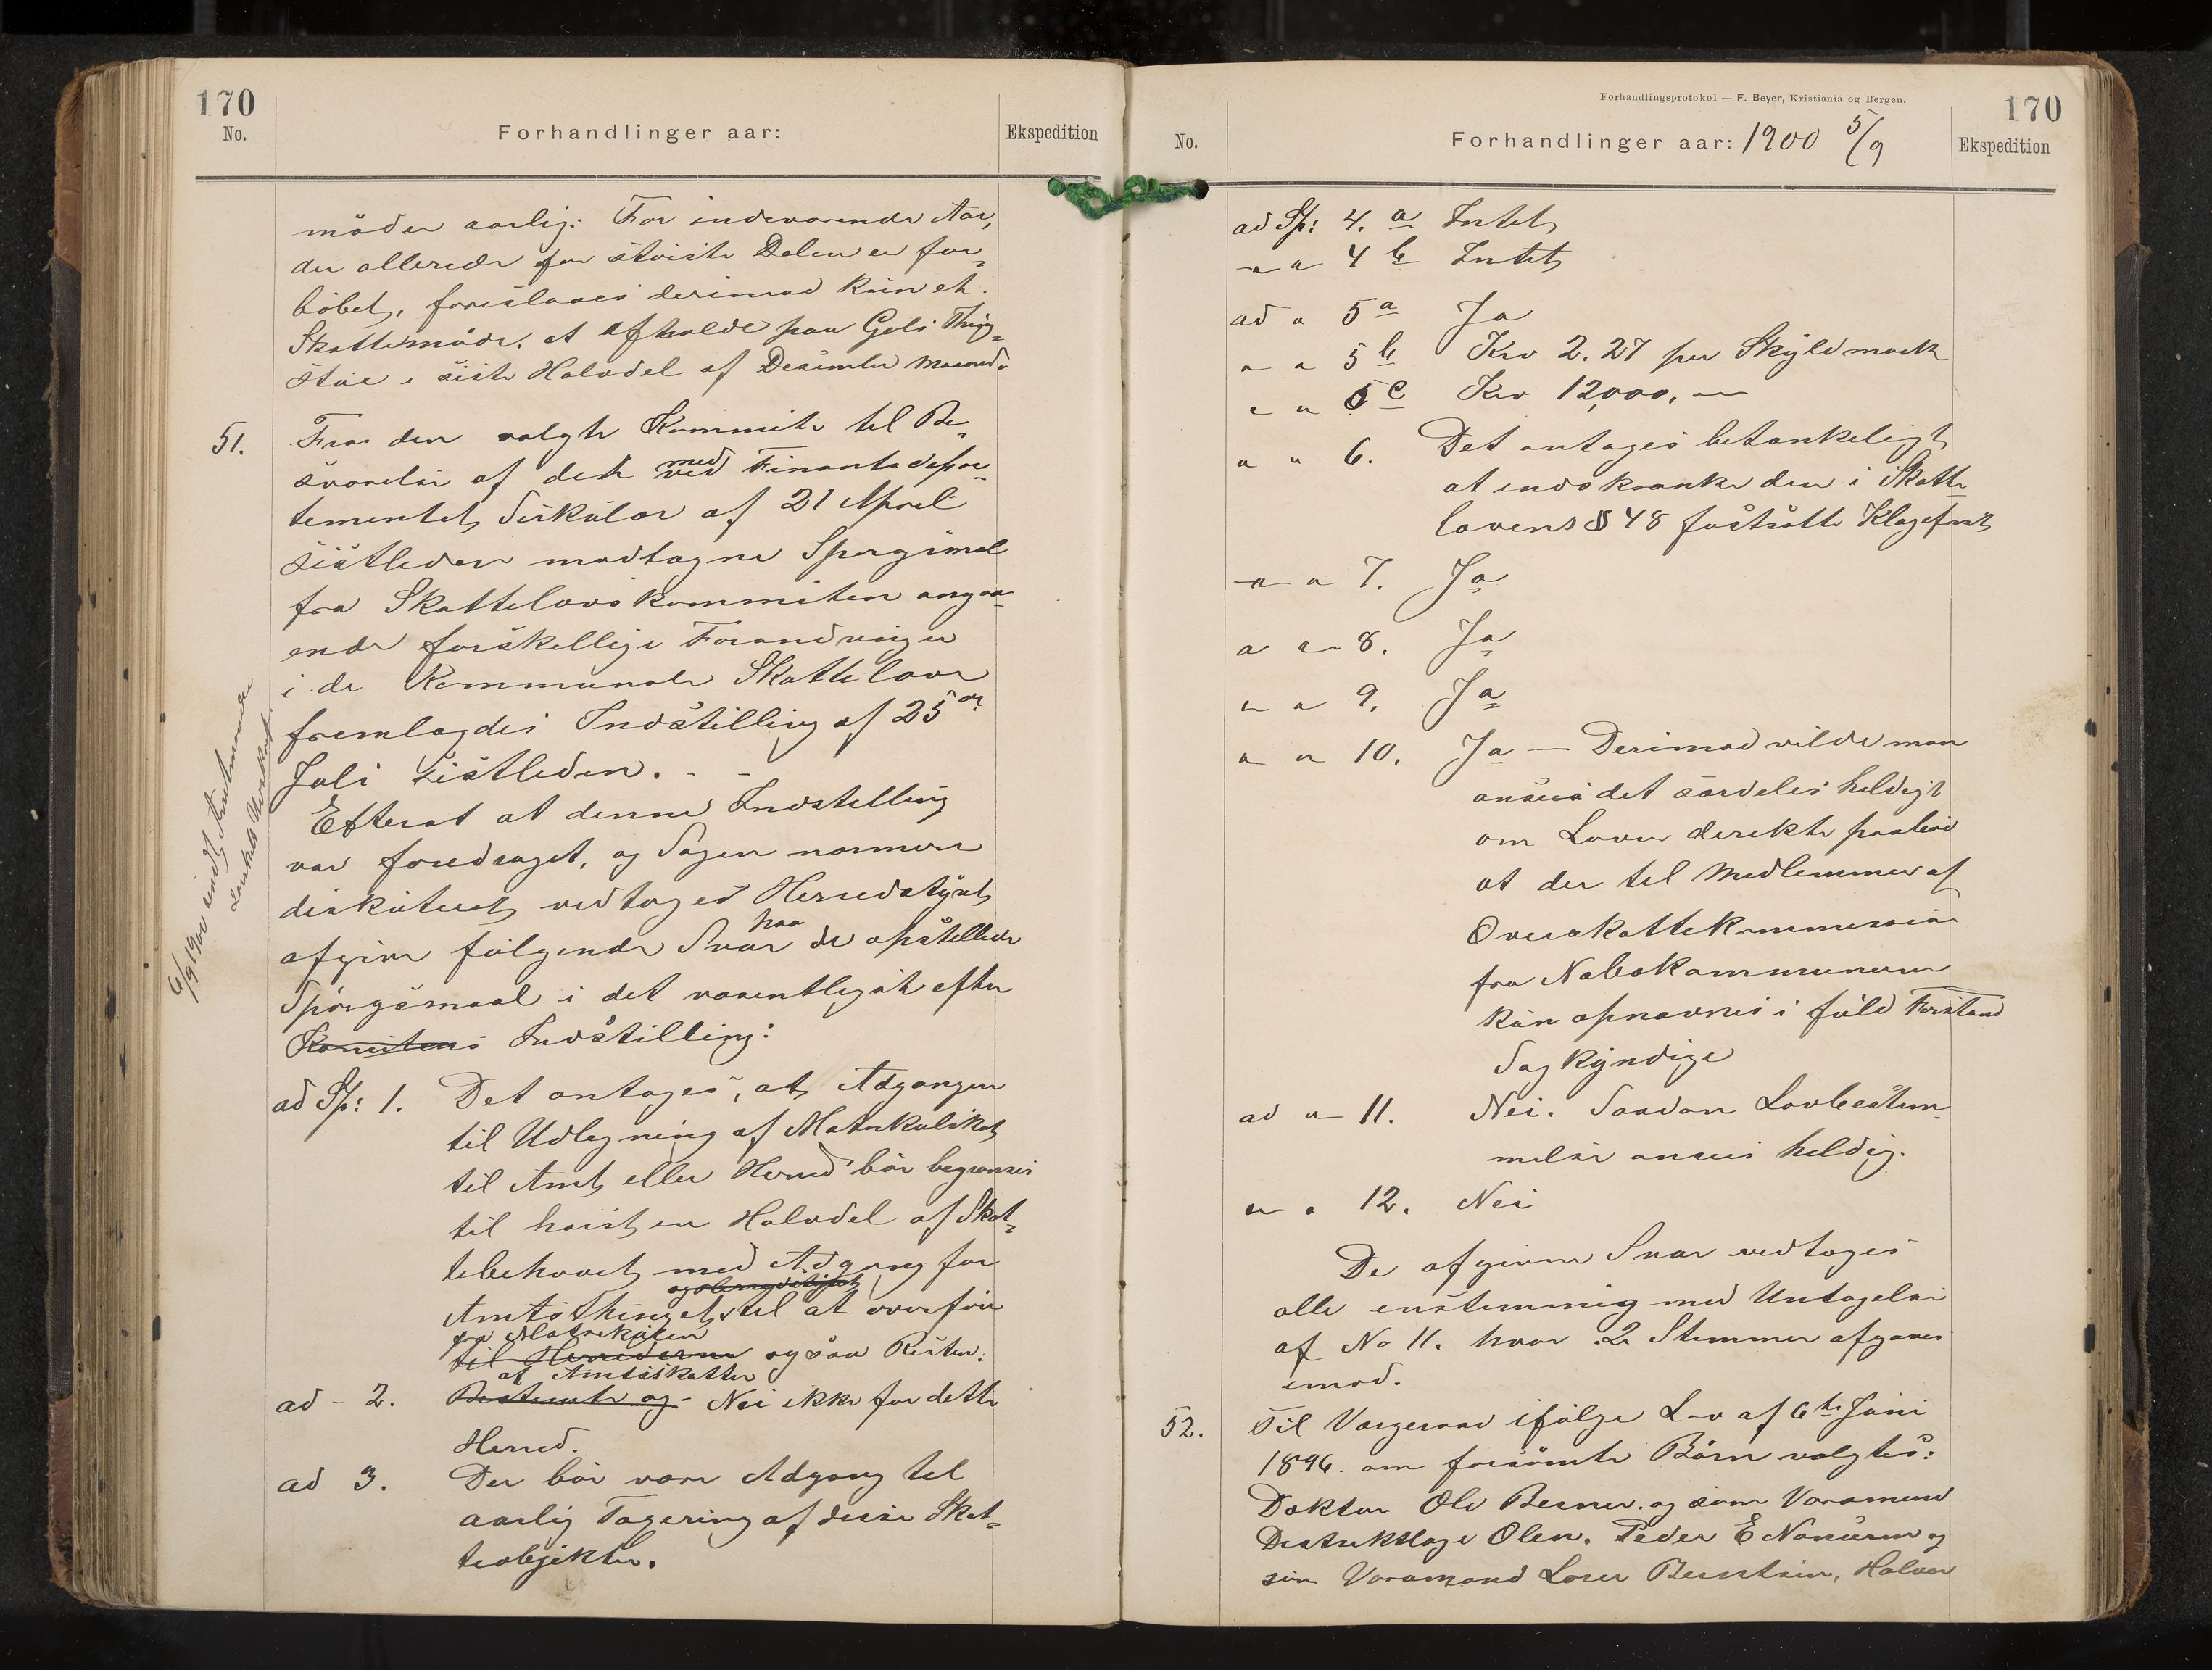 170
No.
Forhandlinger aar:
Ekspedition
möder aarlig. For indeværende Aar,
der allerede for störste Delen er for-
löbet, foreslaaes derimod kun et
Skattemöde at afholde paa Gols Thing-
stue i siste Halvdel af Desember Maaned.
51.
Fra den valgte Kommite til Be-
svarelse af det med Finantsdepar-
tementets Sirkulær af 21 April
sistleden modtagne Spørgsmal
fra Skattelovskommiteen angaa-
ende forskellige Forandringer
i de Kommunale Skattelove
fremlagdes Indstilling af 25de
Juli sistleden.
Efterat at denne Indstilling
var foredraget, og Sagen nærmere
diskuteret, vedtoges Herredstyret
afgive følgende Svar paa de opstillede
Spörgsmaal i det væsentligste efter
Komiteens Indstilling:
ad Sp: 1. Det antages, at Adgangen
til Udlegning af Matrikulskat
til Amt eller Herred bör begrænses
til höist en Halvdel af Skat-
tebehovet med Adgang for
og Herredstyret
Amtsthinget til at overføre
fra Matrikulen
til Herrederne ogsaa Resten.
af Amtsskatter
ad - 2. Bestemte og - Nei ikke for dette
Herred.
ad 3. Der bör være Adgang til
aarlig Taxering af disse Skat-
teobjekter.
6/9 1900 sendt Amtmanden
særskilt Udskrift.
Forhandlingsprotokol — F. Beyer, Kristiania og Bergen.
170
No.
Forhandlinger aar: 1900 5/9
Ekspedition
ad Sp: 4. a Intet
" " 4 b Intet
ad " 5 a Ja
" " 5 b Kr 2.27 per Skyldmark
" " 5 c Kr 12,000. —
" " 6. Det antages betænkeligt
at indskrænke den i Skatte
lovens § 48 fastsatte Klagefrist
" " 7. Ja
" " 8. Ja
" " 9. Ja
" " 10. Ja — Derimod vilde man
ansees det særdeles heldigt
om Loven direkte paabød
at der til Medlemmer af
Overskattekommission
fra Nabokommunerne
kun opnævnes i fuld Forstand
Sagkyndige
ad " 11. Nei. Saadan Lovbestem-
melse ansees heldig.
" " 12. Nei
De afgivne Svar vedtoges
alle enstemmig med Untagelse
af No 11. hvor 2 Stemmer afgaves
imod.
52.
Til Værgeraad ifølge Lov af 6te Juni
1896. om forsömte Börn valgtes:
Doktor Ole Berner. og som Varamand
Distriktlæge Olen. Peder E
som Varamand Berntsen, Halvor